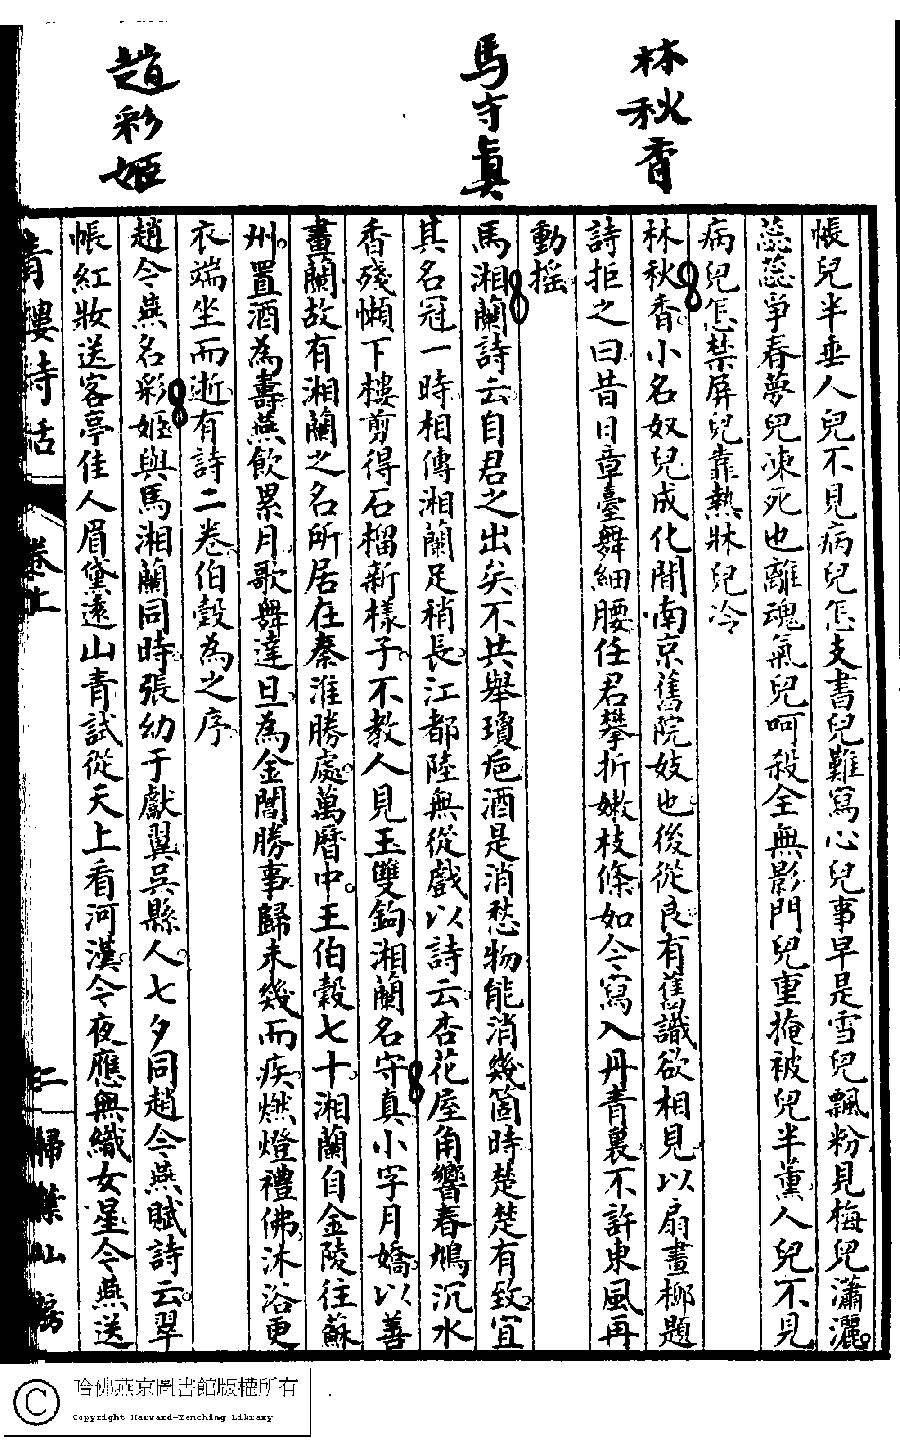 林秋香
馬守眞
趙彩姬
帳兒半垂人兒不見病兒怎支書兒難寫心兒事早是雪兒飄粉見梅兒瀟灑
蕊蕊爭春夢兒凍死也離魂氣兒呵殺全無影門兒重掩被兒半薰人兒不見
病兒怎禁屏兒靠熱牀兒冷
林秋香小名奴兒成化間南京舊院妓也後從良有舊識欲相見以扇畫柳題
詩拒之曰昔日章臺舞細腰任君攀折嫩枝條如今寫入丹青裏不許東風再
動搖
馬湘蘭詩云自君之出矣不共舉瓊巵酒是消愁物能消幾箇時楚楚有致宜
其名冠一時相傳湘蘭足稍長江都陸無從戲以詩云杏花屋角響春鳩沉水
香殘懶下樓剪得石榴新樣子不教人見玉雙鉤湘蘭名守真小字月嬌以善
畫蘭故有湘蘭之名所居在秦淮勝處萬曆中王伯穀七十湘蘭自金陵往蘇
州置酒為壽燕飲累月歌舞達旦為金閶勝事歸未幾而疾燃燈禮佛沐浴更
衣端坐而逝有詩二卷伯穀為之序
趙令燕名彩姬與馬湘蘭同時張幼于獻翼吳縣人七夕同趙令燕賦詩云翠
帳紅妝送客亭佳人眉黛遠山青試從天上看河漢今夜應無織女星令燕送
青樓詩話 卷上 二 掃葉山房
哈佛燕京圖書館版權所有
Copyright Harvard-Yenching Library